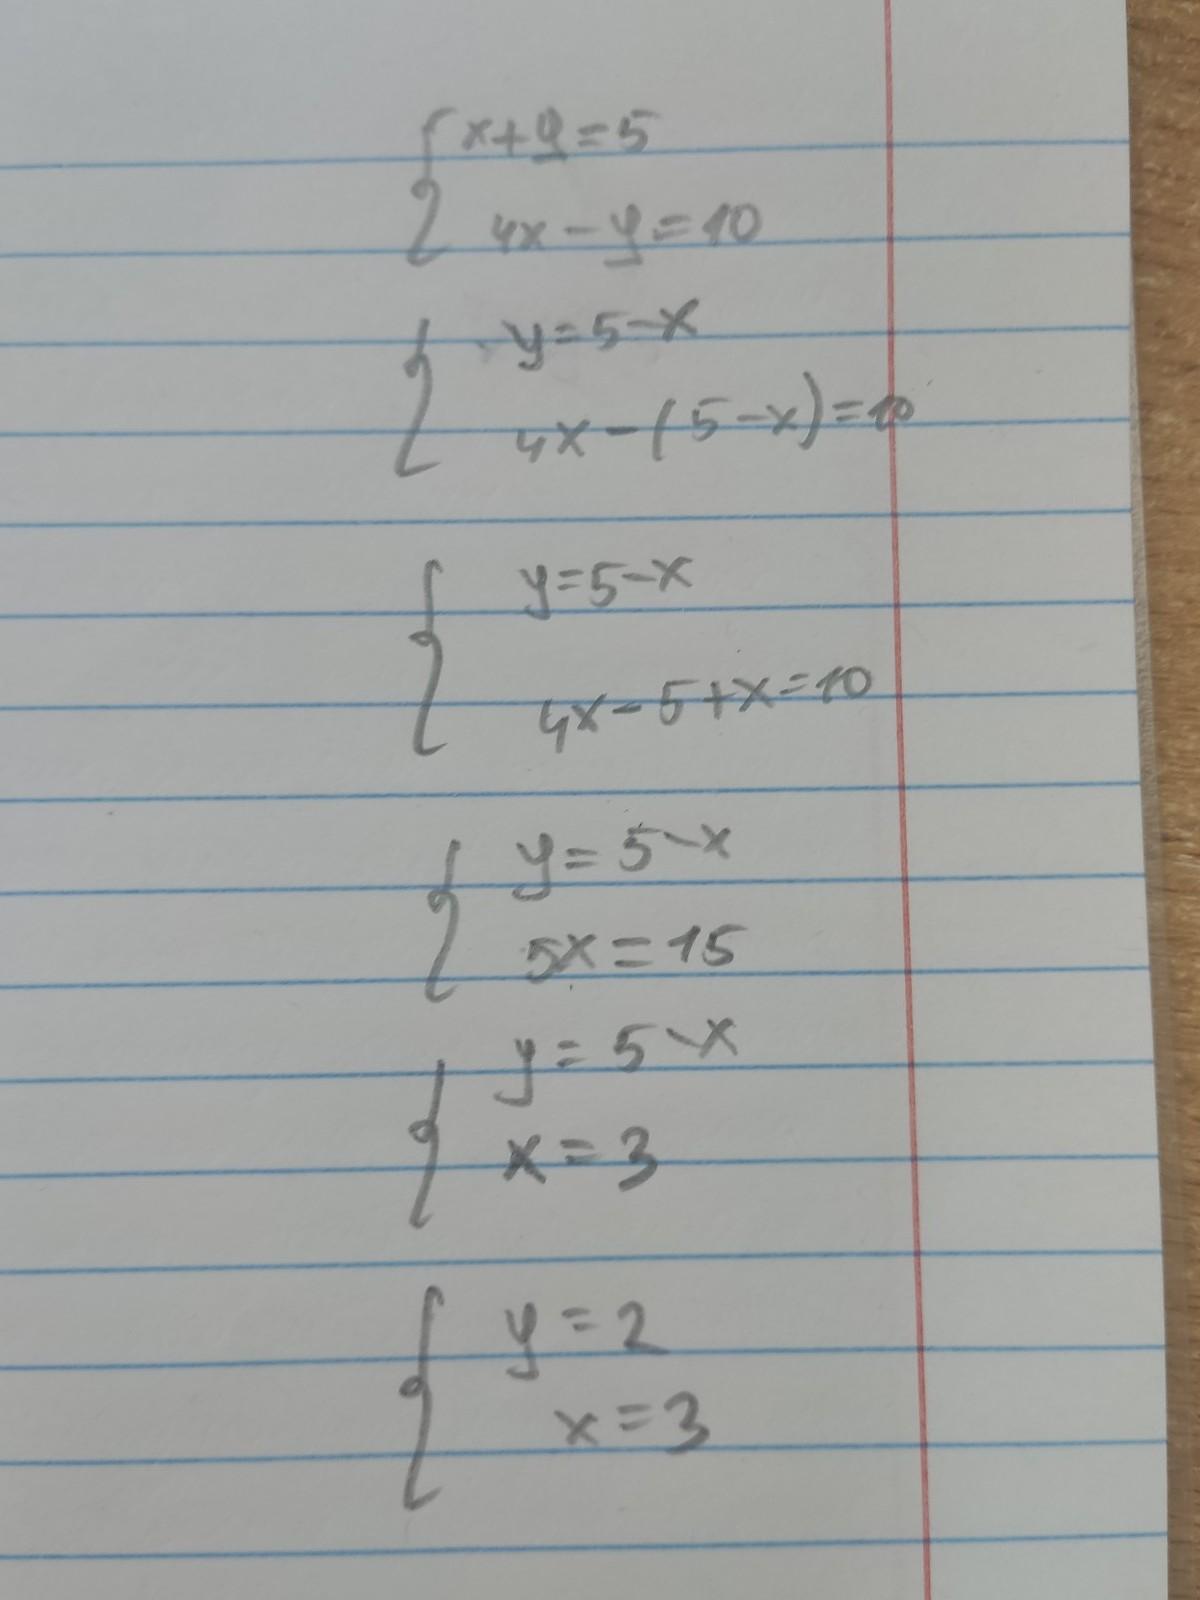 x+y=5
4x-y=10
y=5-x
4x-(5-x)=10
y=5-x
4x-5+x=10
y=5-x
5x=15
y=5-x
x=3
y=2
x=3